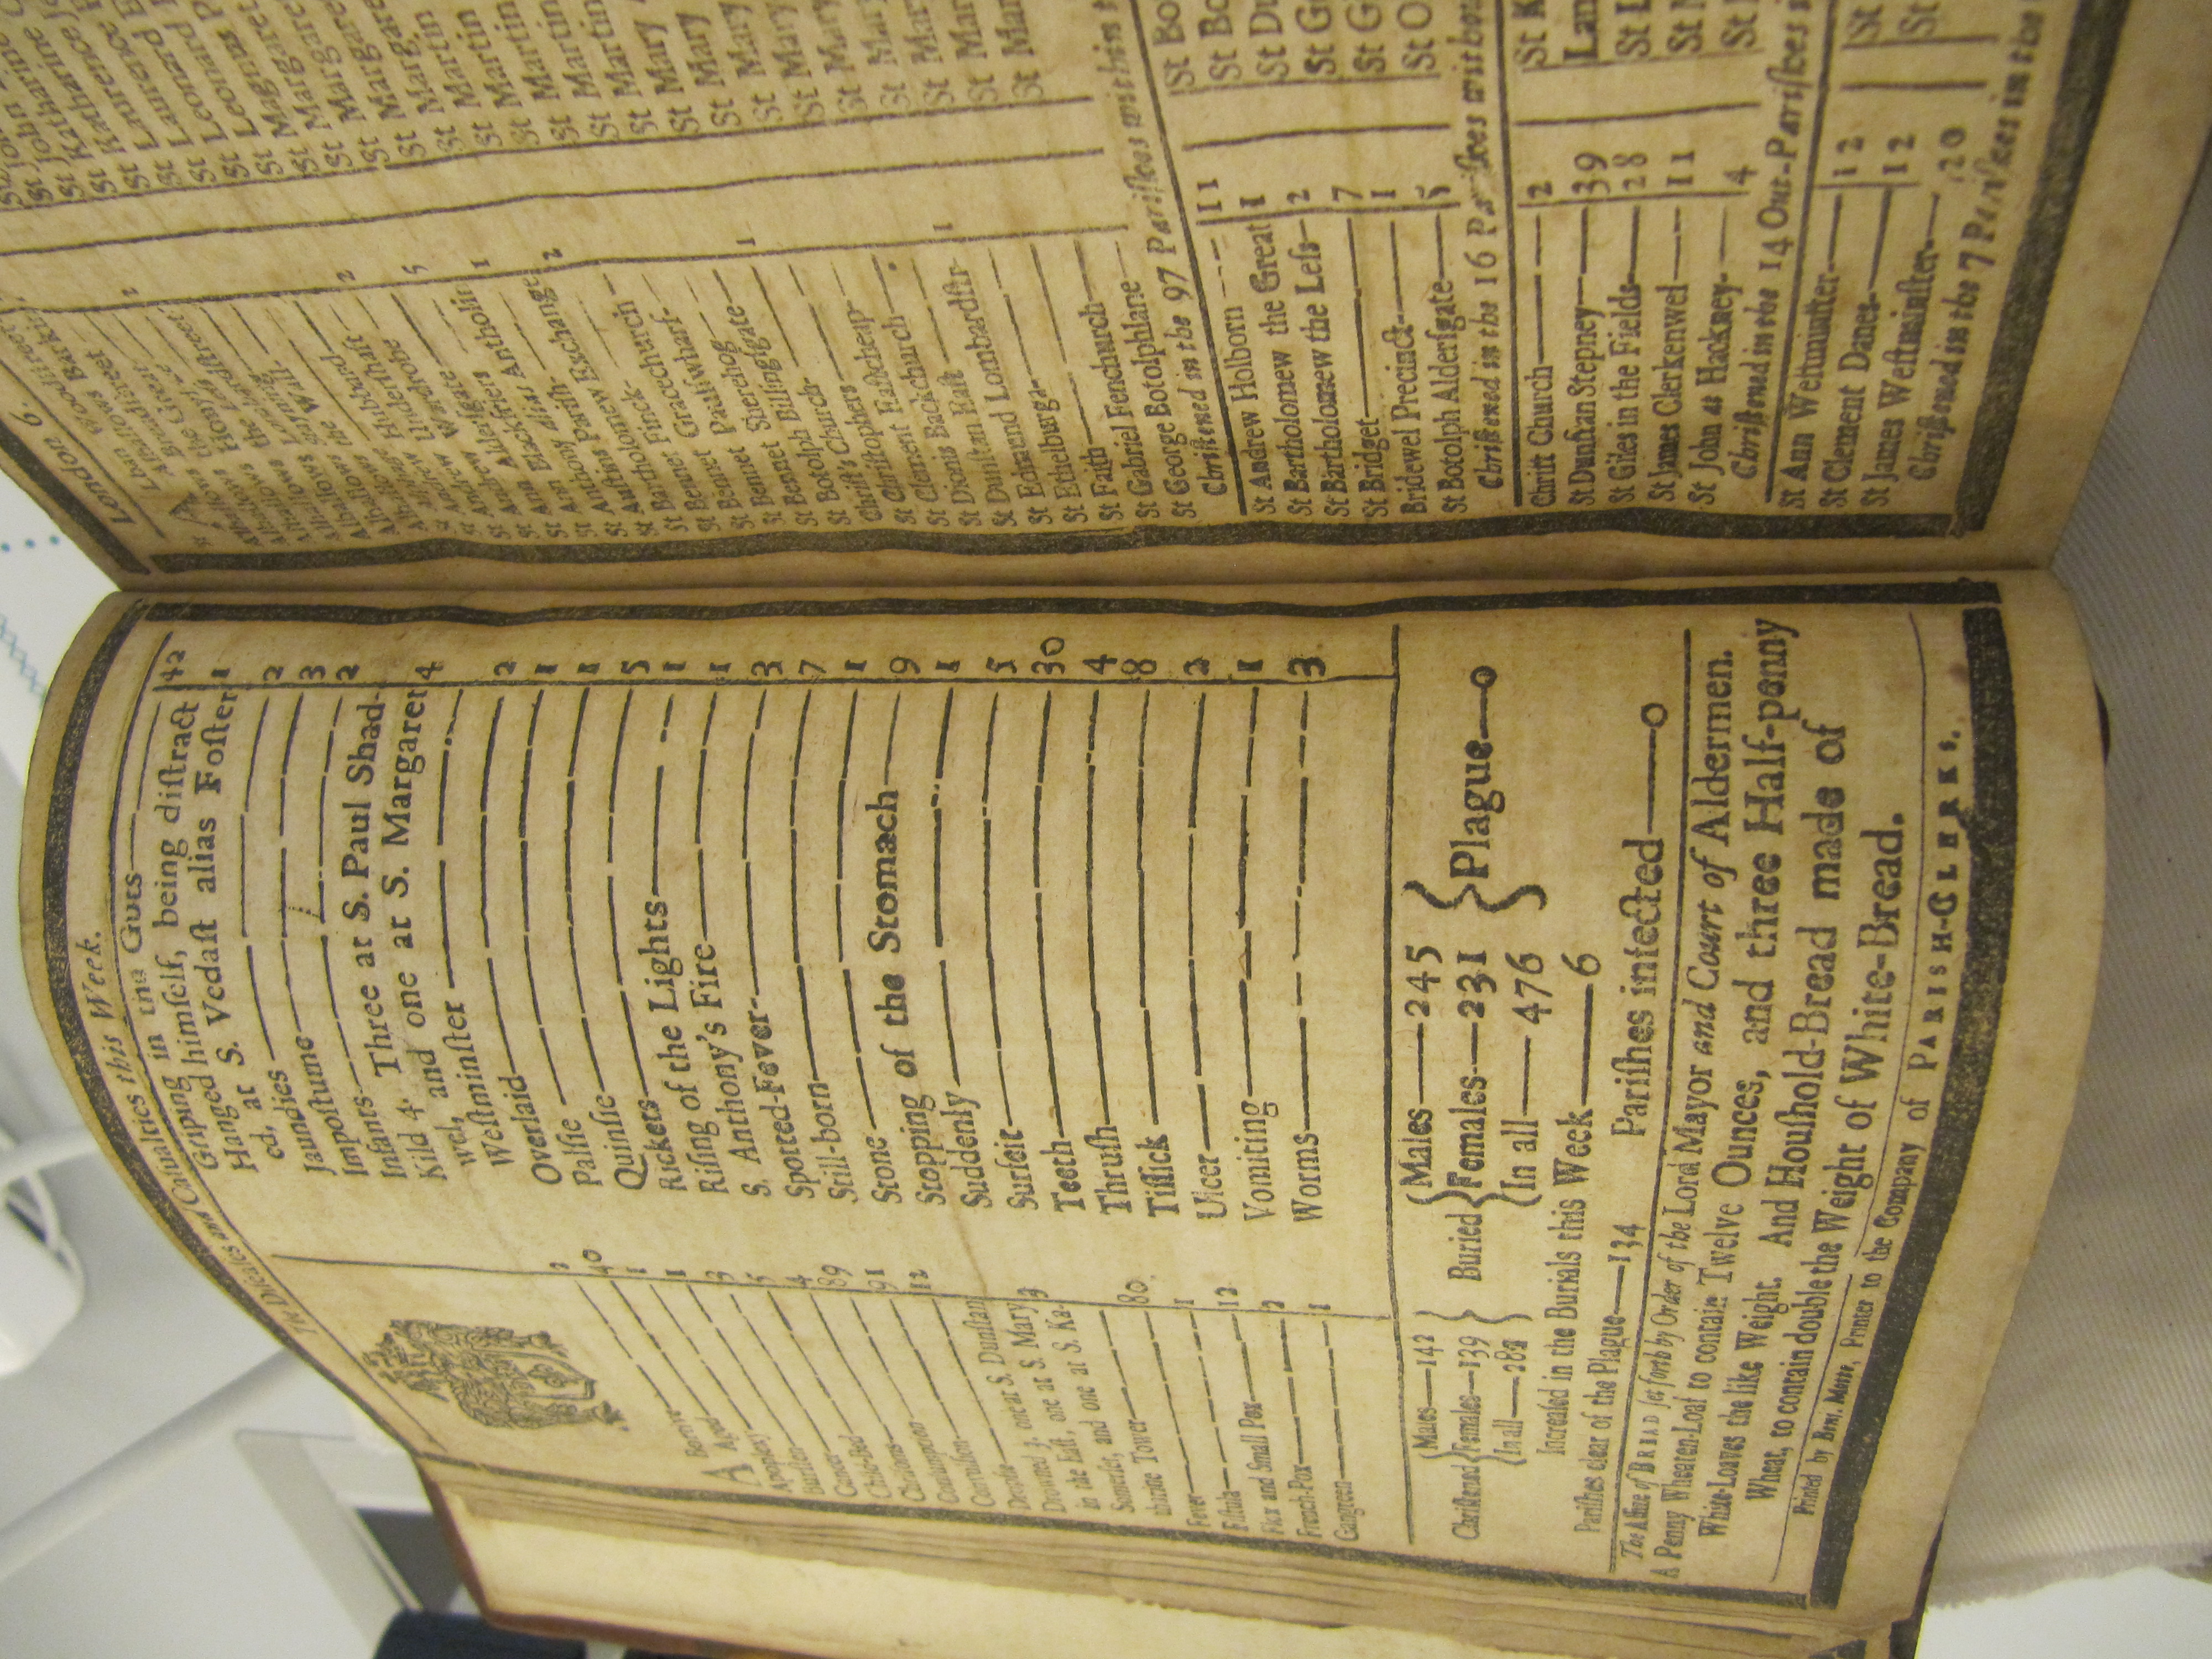 The Diseases and Casualties this Week.
Abortive 2
Aged 40
Apoplexy 1
Bursten 1
Cancer 3
Child-bed 5
Chrisoms 4
Consumption 89
Convulsion 91
Dropsie 12
Drowned 3, one at S. Dunstan
in the East, one at S. Mary 3
Somerset, and one at S. Ka-
tharine Tower
Fever 80
Fistula 1
Flox and Small Pox 12
French-Pox 2
Gangreen 1
Griping in the Guts 42
Hanged himself, being distract
ed, at S. Vedast alias Foster 1
Jaundies 2
Impostume 3
Infants 2
Kild 4. Three at S. Paul Shad-
wel, and one at S. Margaret 4
Westminster
Overlaid 2
Palsie 1
Quinsie 1
Rickets 5
Rising of the Lights 1
S. Anthony's Fire 1
Spotted-Fever 3
Still-born 7
Stone 1
Stopping of the Stomach 9
Suddenly 1
Surfeit 5
Teeth 30
Thrush 4
Tissick 8
Ulcer 2
Vomiting 1
Worms 3
Christened
Males 142
Females 139
In all 281
Buried
Males 245
Females 231
In all 476
Plague 0
Increased in the Burials this Week 6
Parishes clear of the Plague 134 Parishes infected 0
The Assize of BREAD set forth by Order of the Lord Mayor and Court of Aldermen.
A Penny Wheaten-Loaf to contain Twelve Ounces, and three Half-penny
White-Loaves the like Weight. And Houshold-Bread made of
Wheat, to contain double the Weight of White-Bread.
Printed by Benj. Motte, Printer to the Company of PARISH-CLERKS.
London 6.
Alban Woodstreet
Alhallows Barking 2
Alhallows Breadstreet
Alhallows the Great
Alhallows Honylane
Alhallows the Less
Alhallows Lumbardstreet
Alhallows Staining
Alhallows the Wall 2
Alphage
Andrew Hubbard
Andrew Undershaft 5
Andrew Wardrobe
St Ann Aldersgate 1
St Ann Blackfriers
St Antholin alias Antholine
St Austins Parish
St Bartholomew Exchange 2
St Bennet Finck
St Bennet Gracechurch
St Bennet Paulswharf
St Bennet Sherehog
St Botolph Billingsgate 1
Christ's Church
St Christophers
St Clement Eastcheap
St Dionis Backchurch
St Dunstan East 1
St Edmund Lombardstr
St Ethelburga
St Faith
St Gabriel Fenchurch
St George Botolphlane
Christened in the 97 Parishes within t
St Andrew Holborn 11
St Bartholomew the Great 1
St Bartholomew the Less 2
St Bridget 7
Bridewel Precinct 1
St Botolph Aldersgate 5
Christened in the 16 Parishes withou
Christ Church 2
St Dunstan Stepney 39
St Giles in the Fields 28
St James Clerkenwel 11
St John at Hackney 4
Christened in the 14 Out-Parishes i
St Ann Westminster 12
St Clement Danes 12
St James Westminster 20
Christened in the 7 Parishes in the
St John
St Katharine
St Katharine
St Laurence
St Laurence
St Leonard
St Leonard
St Magnus P
St Margaret
St Margaret
St Margare
St Martin
St Martin
St Martin
St Martin
St Martin
St Mary
St Mary
St Mary
St Mary
St Mary
St Mar
St Mar
St Mar
St Bo
St Bo
St Du
St G
St G
St O
St K
Lan
St L
St M
St
St
St